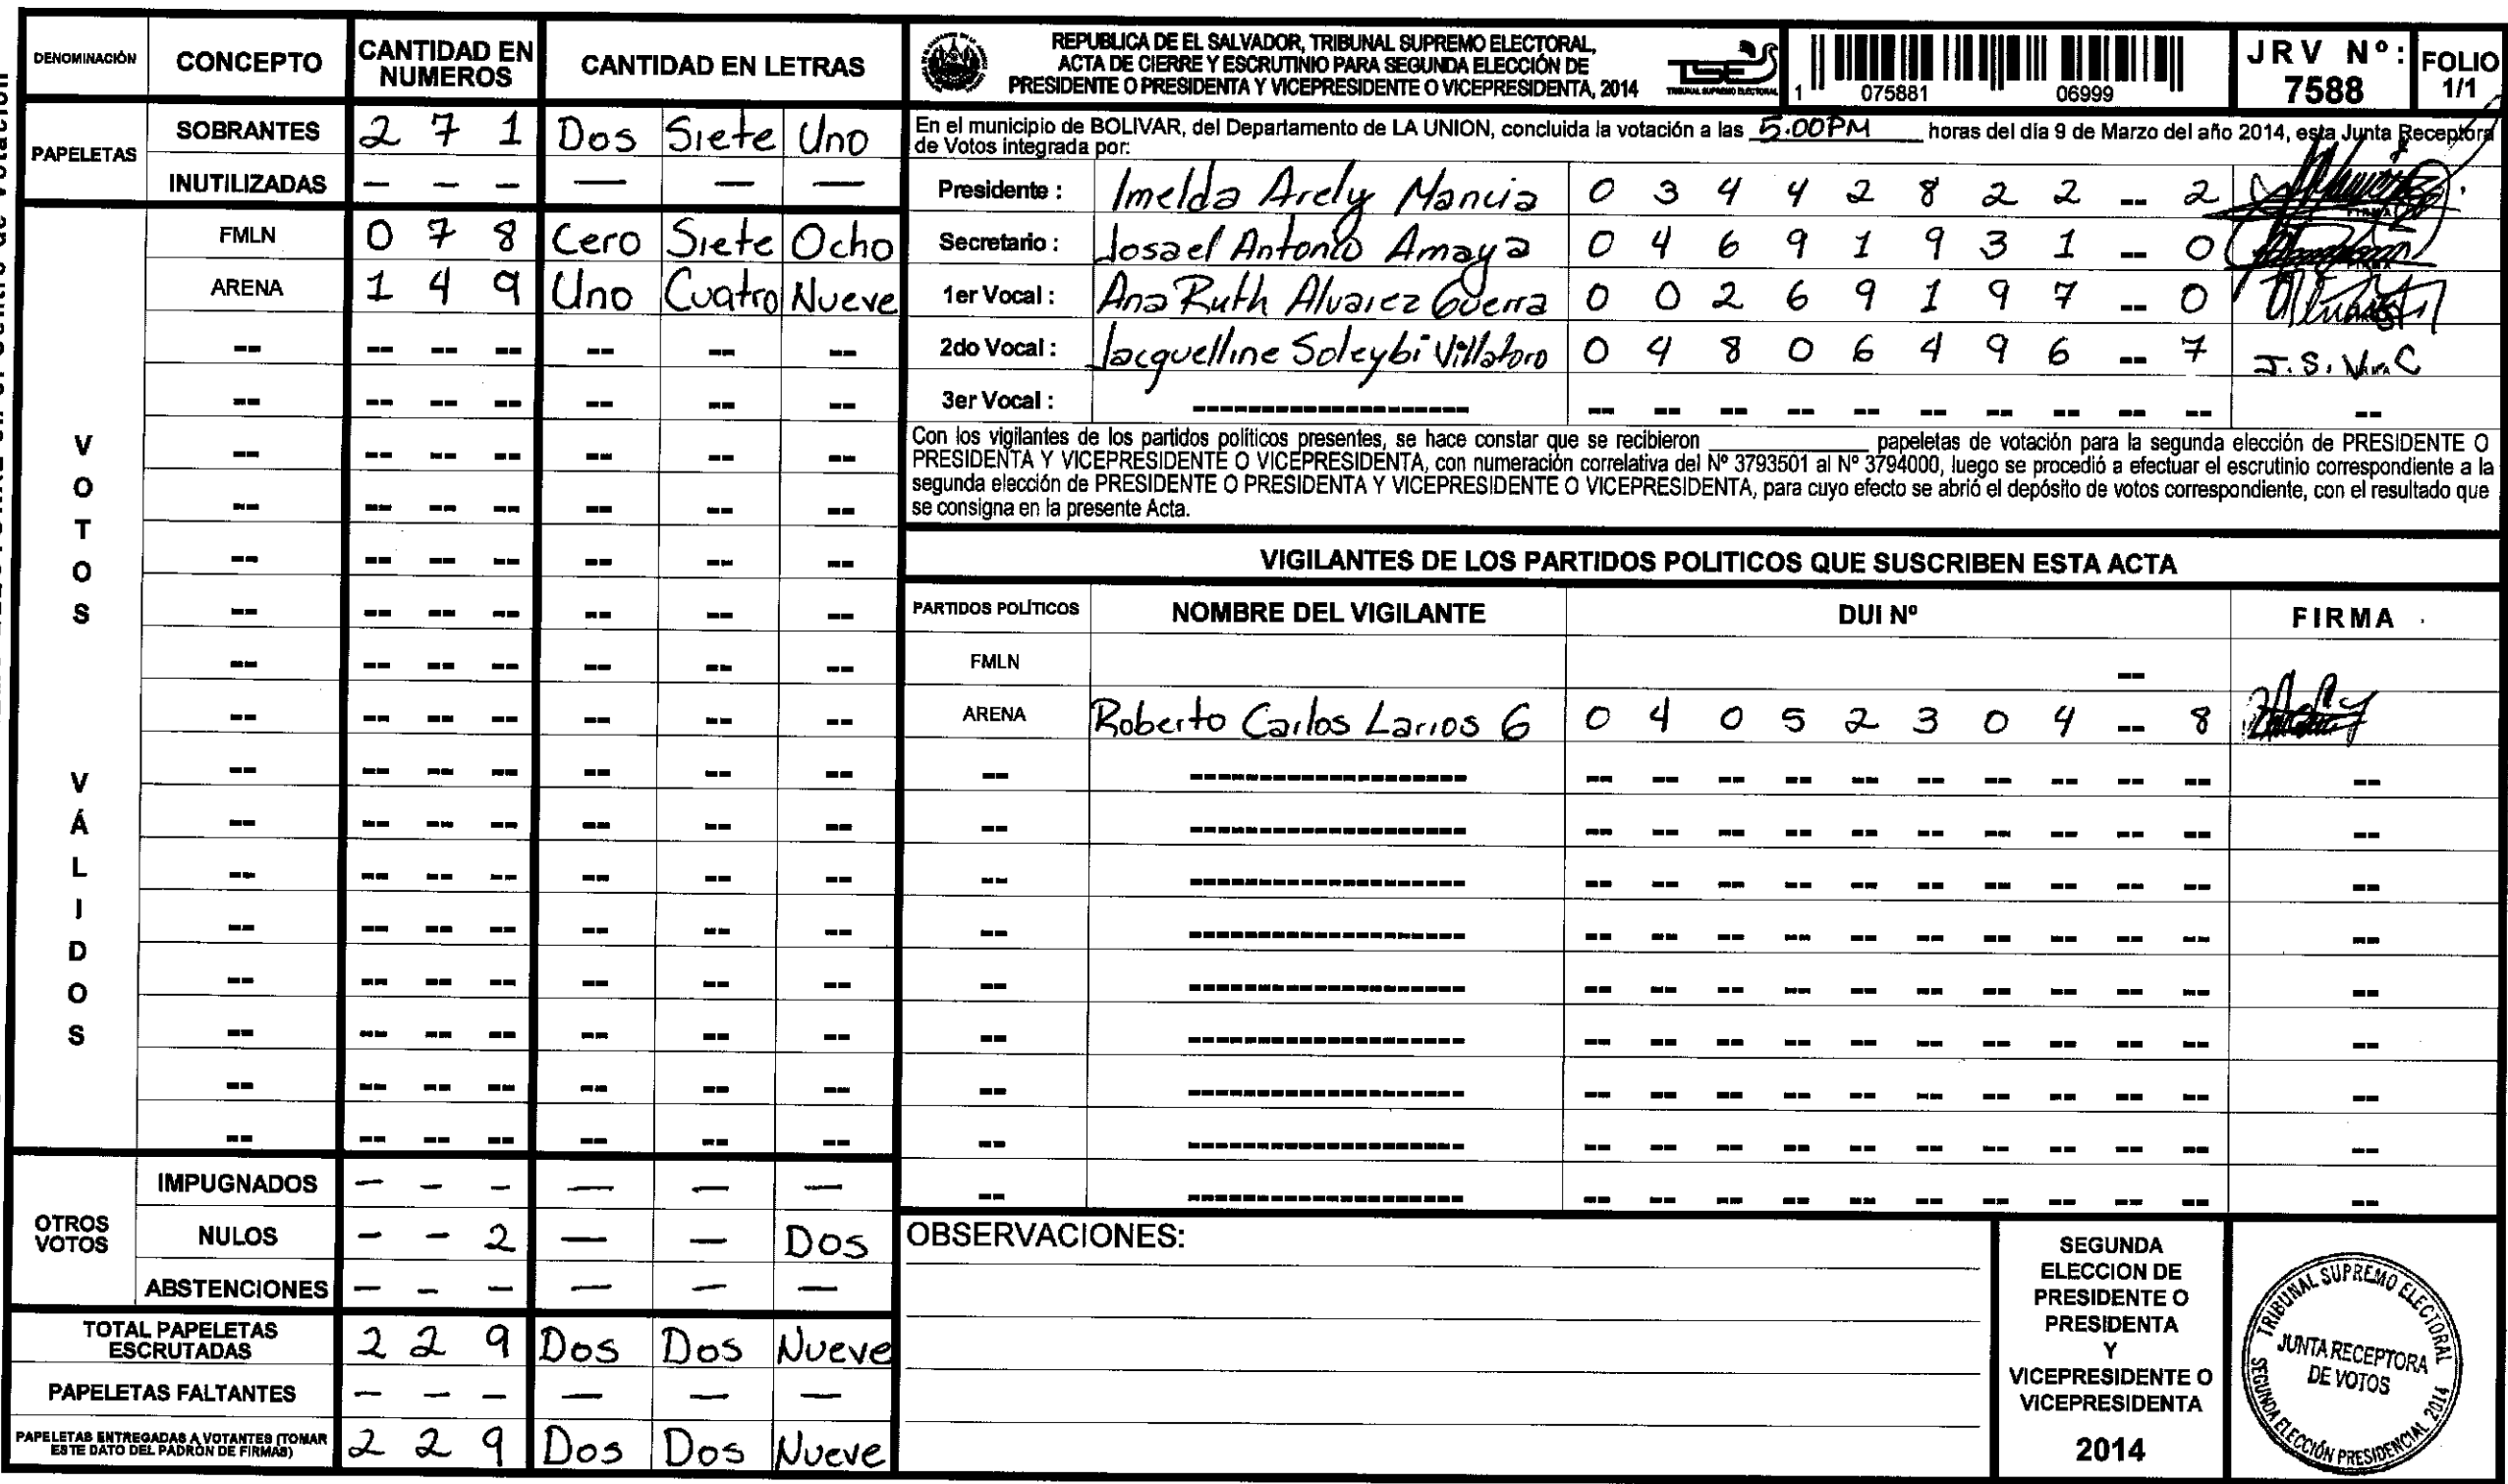 DENOMINACIÓN CONCEPTO CANTIDAD EN NUMEROS CANTIDAD EN LETRAS
PAPELETAS
SOBRANTES 2 7 1 Dos Siete Uno
INUTILIZADAS — — — — — —
VOTOS VÁLIDOS
FMLN 0 7 8 Cero Siete Ocho
ARENA 1 4 9 Uno Cuatro Nueve
OTROS VOTOS
IMPUGNADOS — — — — — —
NULOS — — 2 — — Dos
ABSTENCIONES — — — — — —
TOTAL PAPELETAS ESCRUTADAS 2 2 9 Dos Dos Nueve
PAPELETAS FALTANTES — — — — — —
PAPELETAS ENTREGADAS A VOTANTES (TOMAR ESTE DATO DEL PADRÓN DE FIRMAS) 2 2 9 Dos Dos Nueve
REPUBLICA DE EL SALVADOR, TRIBUNAL SUPREMO ELECTORAL,
ACTA DE CIERRE Y ESCRUTINIO PARA SEGUNDA ELECCIÓN DE
PRESIDENTE O PRESIDENTA Y VICEPRESIDENTE O VICEPRESIDENTA, 2014
TSE
TRIBUNAL SUPREMO ELECTORAL
1 075881 06999
JRV Nº: 7588
FOLIO 1/1
En el municipio de BOLIVAR, del Departamento de LA UNION, concluida la votación a las 5.00PM horas del día 9 de Marzo del año 2014, esta Junta Receptora
de Votos integrada por:
Presidente : Imelda Arely Mancia 0 3 4 4 2 8 2 2 -- 2
Secretario : Josael Antonio Amaya 0 4 6 9 1 9 3 1 -- 0
1er Vocal : Ana Ruth Alvarez Guerra 0 0 2 6 9 1 9 7 -- 0
2do Vocal : Jacquelline Soleybi Villatoro 0 4 8 0 6 4 9 6 -- 7 J.S.
3er Vocal :
Con los vigilantes de los partidos políticos presentes, se hace constar que se recibieron ______ papeletas de votación para la segunda elección de PRESIDENTE O
PRESIDENTA Y VICEPRESIDENTE O VICEPRESIDENTA, con numeración correlativa del Nº 3793501 al Nº 3794000, luego se procedió a efectuar el escrutinio correspondiente a la
segunda elección de PRESIDENTE O PRESIDENTA Y VICEPRESIDENTE O VICEPRESIDENTA, para cuyo efecto se abrió el depósito de votos correspondiente, con el resultado que
se consigna en la presente Acta.
VIGILANTES DE LOS PARTIDOS POLITICOS QUE SUSCRIBEN ESTA ACTA
PARTIDOS POLÍTICOS NOMBRE DEL VIGILANTE DUI Nº FIRMA
FMLN --
ARENA Roberto Carlos Larios G 0 4 0 5 2 3 0 4 -- 8
OBSERVACIONES:
SEGUNDA
ELECCION DE
PRESIDENTE O
PRESIDENTA
Y
VICEPRESIDENTE O
VICEPRESIDENTA
2014
TRIBUNAL SUPREMO ELECTORAL
JUNTA RECEPTORA
DE VOTOS
SEGUNDA ELECCIÓN PRESIDENCIAL 2014